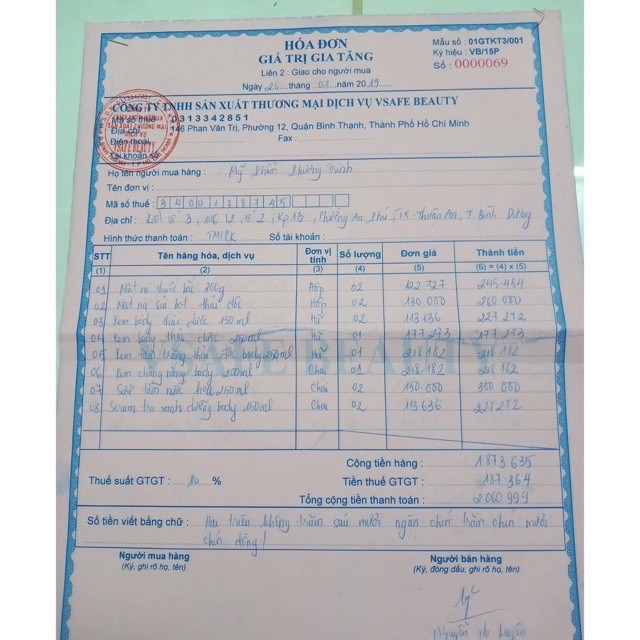 HÓA ĐƠN
GIÁ TRỊ GIA TĂNG
Liên 2 : Giao cho người mua
Ngày 26 tháng 2019
Mẫu số : 01GTKT3/001
Ký hiệu : VB/15P
Số : 0000069
CÔNG TY TNHH SẢN XUẤT THƯƠNG MẠI DỊCH VỤ VSAFE BEAUTY
Mã số thuế 0313342851
Địa chỉ 146 Phan Văn Trị, Phường 12, Quận Bình Thạnh, Thành Phố Hồ Chí Minh
Điện thoại Fax :
Tài khoản số
VSAFE BEAUTY
Họ tên người mua hàng : Mỹ Phẩm Phương Trinh
Tên đơn vị :
Mã số thuế : 3400138745
Địa chỉ : Kp13, Phường An Phú, TX Thuận An, T Bình Dương
Hình thức thanh toán : TM/CK Số tài khoản :
STT Tên hàng hóa, dịch vụ Đơn vị tính Số lượng Đơn giá Thành tiền
(1) (2) (3) (4) (5) (6) = (4) x (5)
01 Mặt nạ thuốc bắc 300g Hộp 02 122.727 245.454
02 Mặt nạ sủi bọt thải độc Hộp 02 130 000 260 000
03 Kem body thảo dược 150ml Hũ 02 113 636 227 272
04 Kem body thảo dược 250ml Hũ 01 177 273 177 273
05 Kem tắm trắng body 250ml Hũ 01 218 182 218 182
06 Kem chống nắng body 200ml Chai 01 218 182 218 182
07 Sữa tắm nước hoa 250ml Chai 02 150 000 300 000
08 Serum trà xanh dưỡng body 150ml Chai 02 113 636 227 272
SAFE BEAUTY
Cộng tiền hàng : 1.873 635
Thuế suất GTGT : 10 % Tiền thuế GTGT : 187 364
Tổng cộng tiền thanh toán : 2 060 999
Số tiền viết bằng chữ : Hai triệu không trăm sáu mươi ngàn chín trăm chín mươi
chín đồng!
Người mua hàng Người bán hàng
(Ký, ghi rõ họ, tên) (Ký, đóng dấu, ghi rõ họ, tên)
Nguyễn